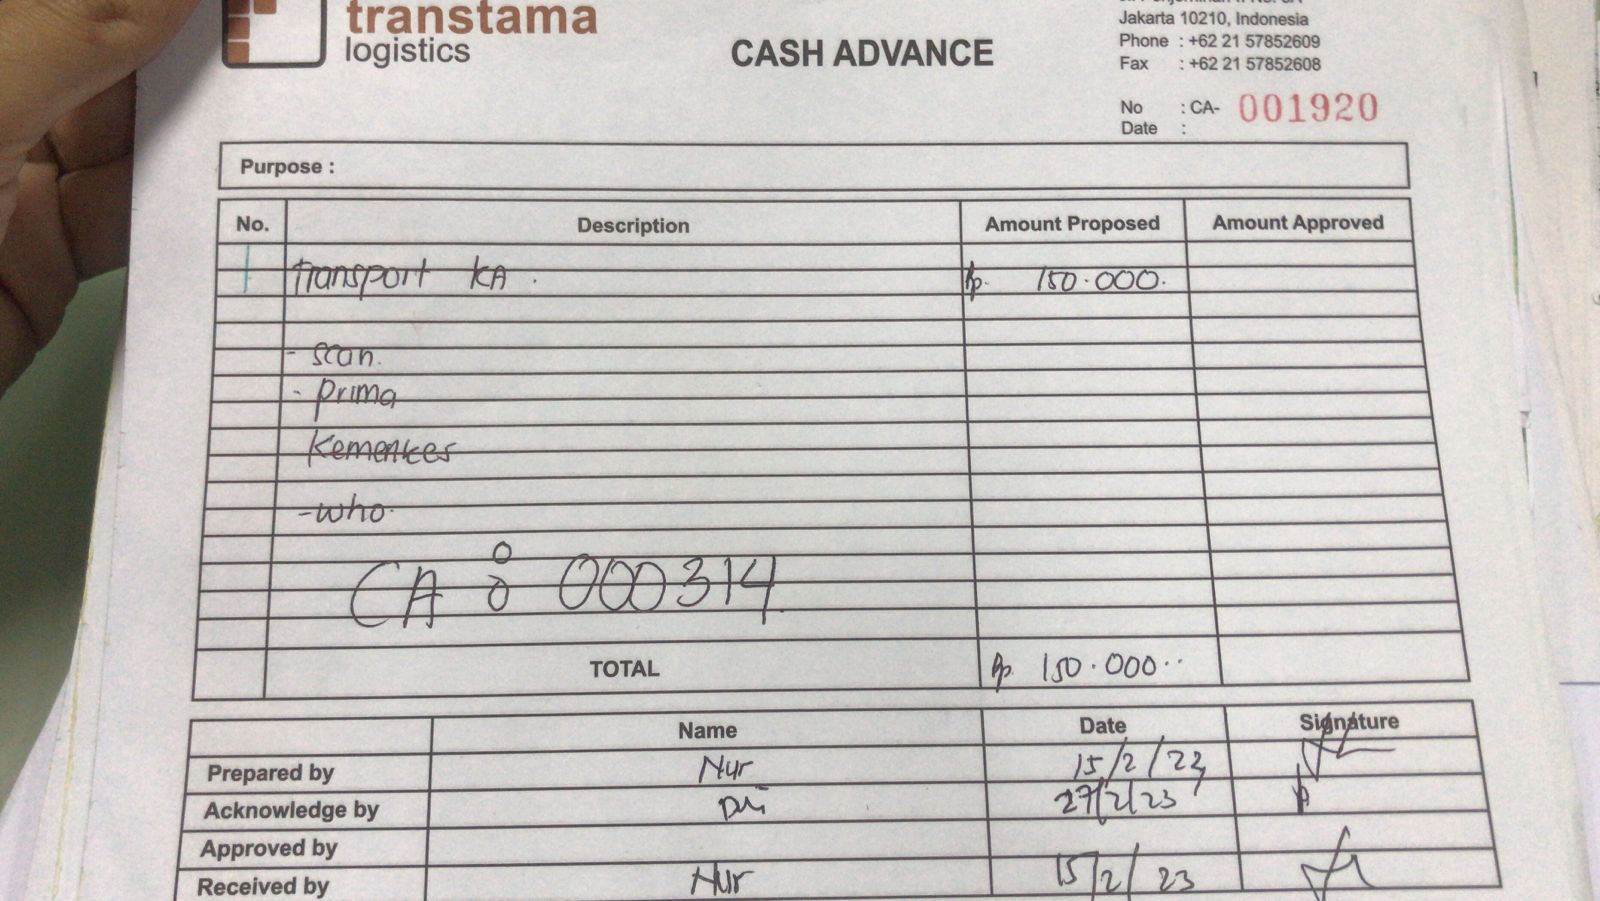 transtama
logistics
CASH ADVANCE
Jakarta 10210, Indonesia
Phone : +62 21 57852609
Fax : +62 21 57852608
No : CA- 001920
Date :
Purpose :
No. Description Amount Proposed Amount Approved
1 Transport KA . Rp. 150.000.
- scan.
- Prima
Kemenkes
- who.
CA : 000314
TOTAL Rp. 150.000..
Name Date Signature
Prepared by Nur 15/2/23
Acknowledge by 27/2/23
Approved by
Received by Nur 15/2/23